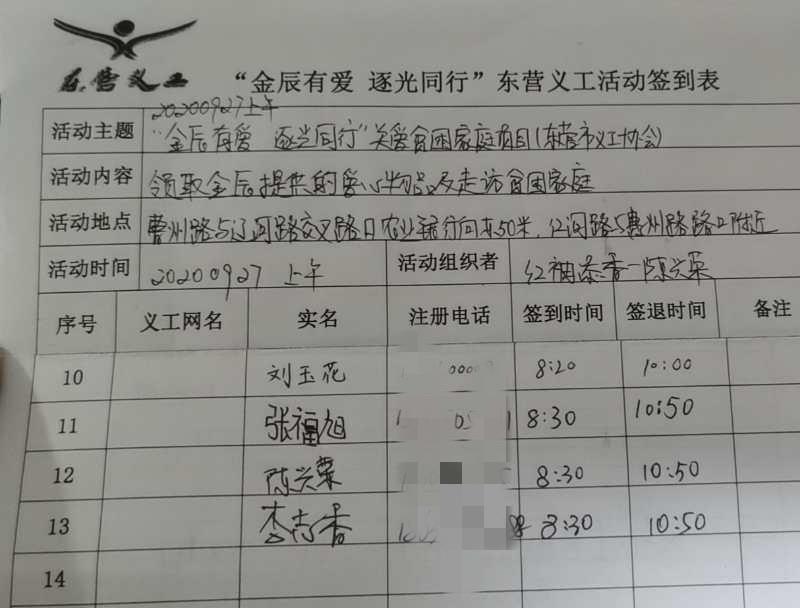 东营义工
“金辰有爱 逐光同行”东营义工活动签到表
20200927上午
活动主题 “金辰有爱 逐光同行”关爱贫困家庭项目(东营市义工协会)
活动内容 领取金辰提供的爱心物品及走访贫困家庭
活动地点 曹州路与辽河路交叉路口农业银行向东50米,红河路与惠州路路口附近
活动时间 20200927 上午 活动组织者 红袖添香—陈兴荣
序号 义工网名 实名 注册电话 签到时间 签退时间 备注
10 刘玉花 8:20 10:00
11 张福旭 8:30 10:50
12 陈兴荣 8:30 10:50
13 李志香 8:30 10:50
14